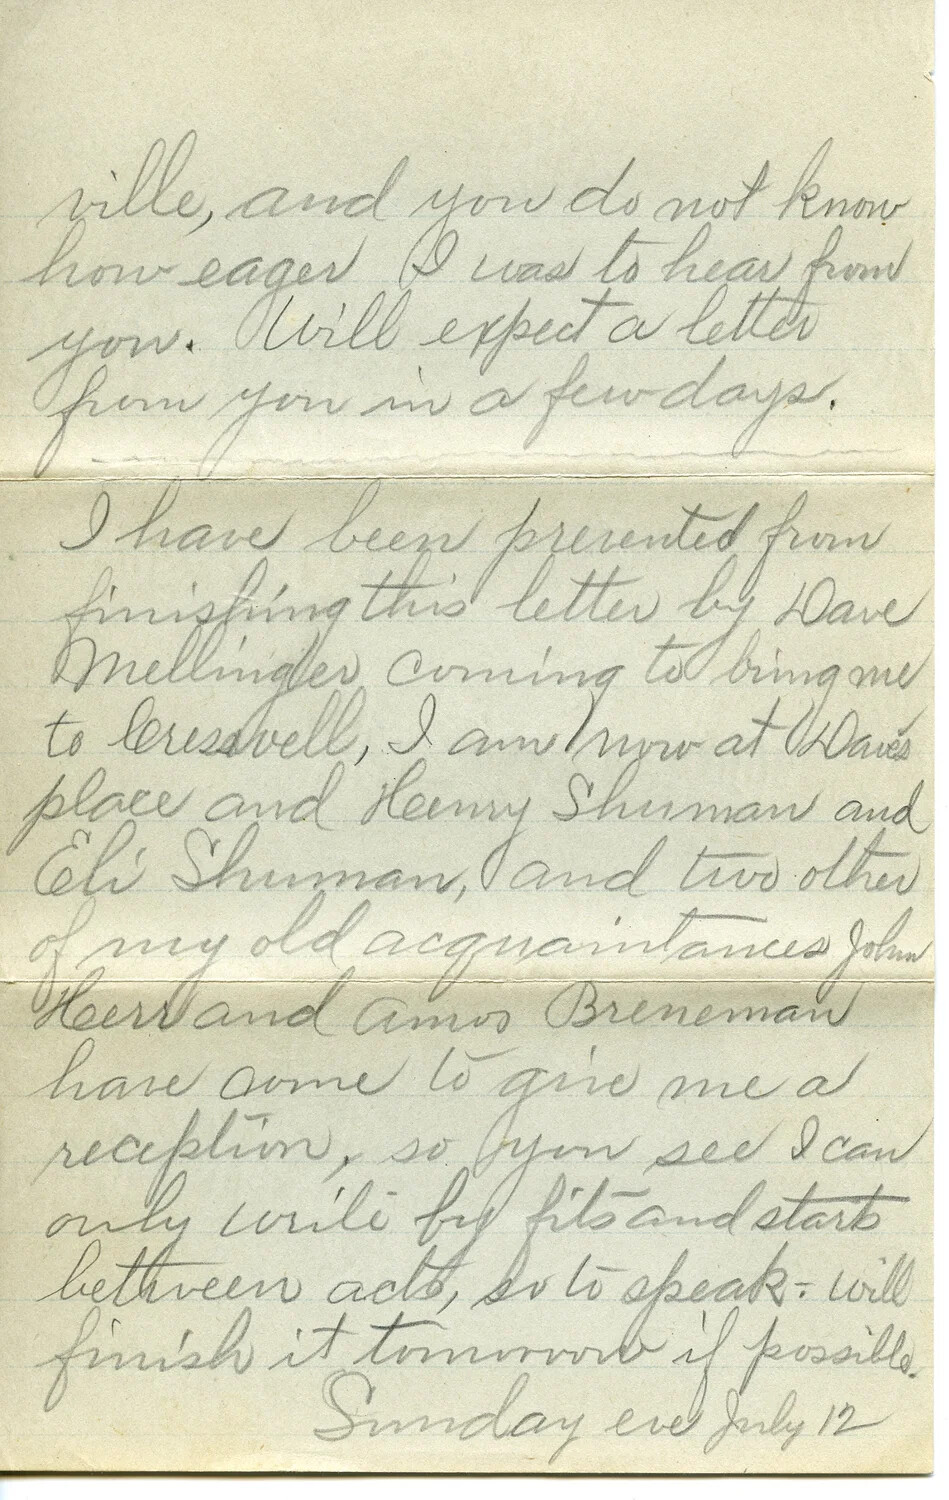 ville, and you do not know
how eager I was to hear from
you. Will expect a letter
from you in a few days.
I have been prevented from
finishing this letter by Dave
Mellinger coming to bring me
to Cresswell, I am now at Dave's
place and Henry Shuman and
Eli Shuman, and two other
of my old acquaintances John
Herr and Amos Breneman
have come to give me a
reception, so you see I can
only write by fits and starts
between acts, so to speak - will
finish it tomorrow if possible.
Sunday eve July 12